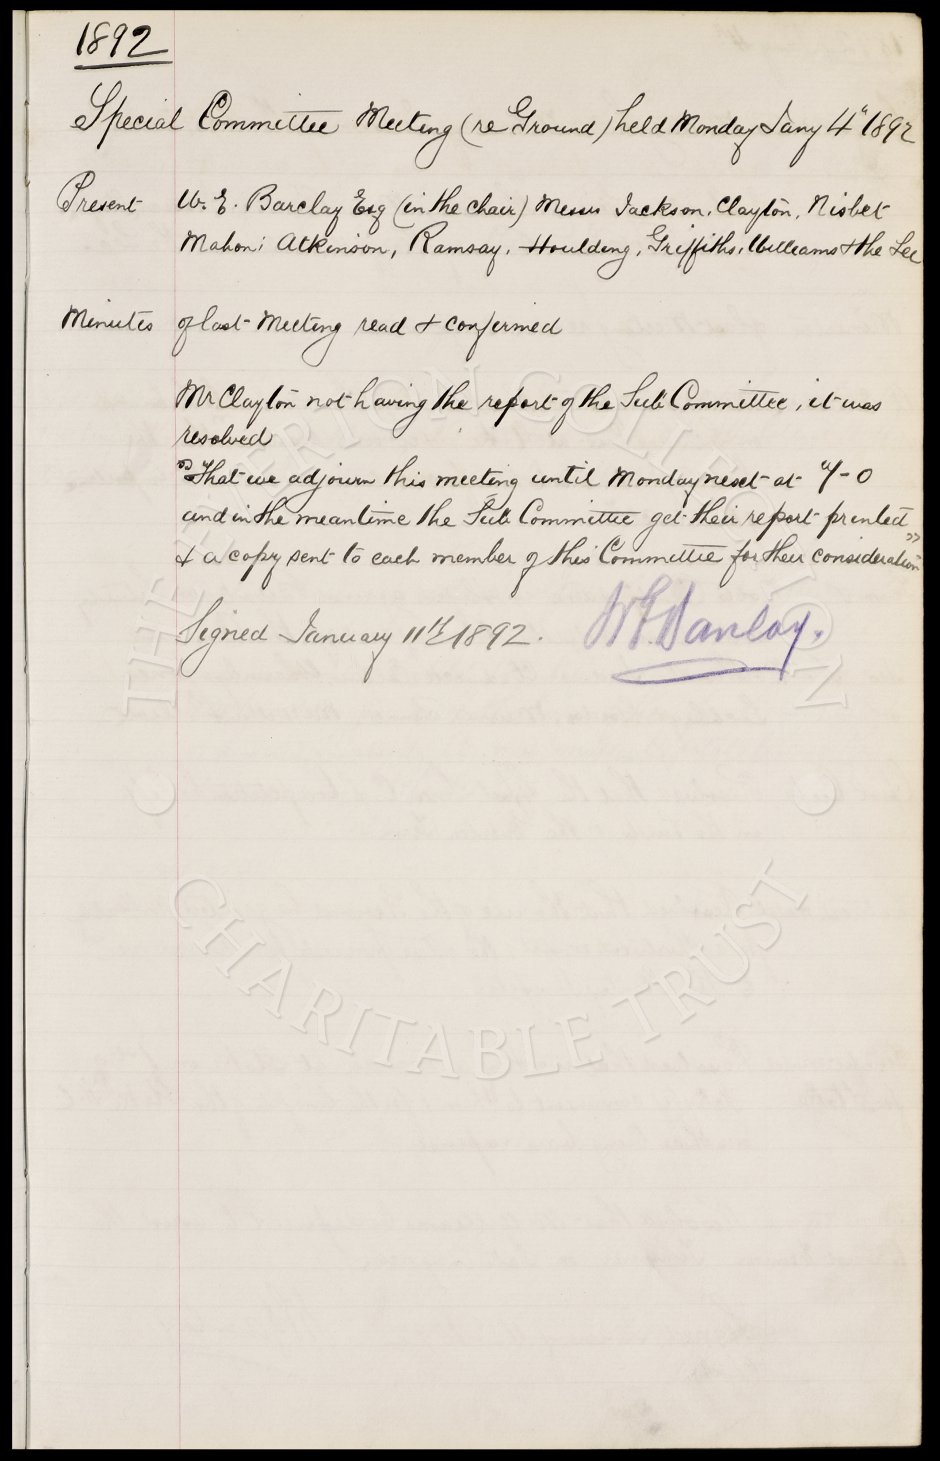 1892
Special Committee Meeting (re Ground) held Monday Jany 4" 1892
Present W. E. Barclay Esq (in the chair) Messrs Jackson, Clayton, Nisbet
Mahon, Atkinson, Ramsay, Houlding, Griffiths, Williams & the Sec
Minutes of last Meeting read & confirmed
Mr Clayton not having the report of the Sub Committee, it was
resolved
"That we adjourn this meeting until Monday next at 7-0
and in the meantime the Sub Committee get their report printed
& a copy sent to each member of this Committee for their consideration"
Signed January 11th 1892. W E Barclay.
THE EVERTON COLLECTION
CHARITABLE TRUST